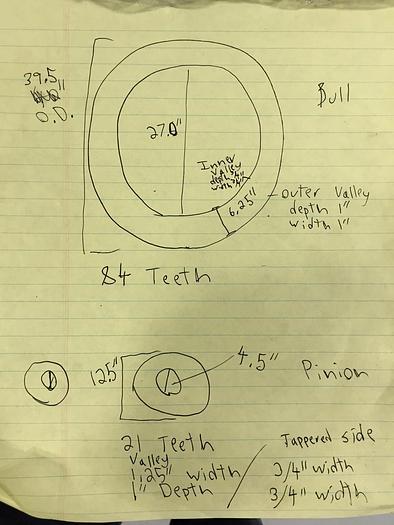 39.5"
O.D.
Bull
27.0"
Inner
Valley
depth 3/4"
width 3/4"
6.25"
outer Valley
depth 1"
width 1"
84 Teeth
12.5"
4.5"
Pinion
21 Teeth
Valley
1.25" width
1" Depth
Tappered side
3/4" width
3/4" width